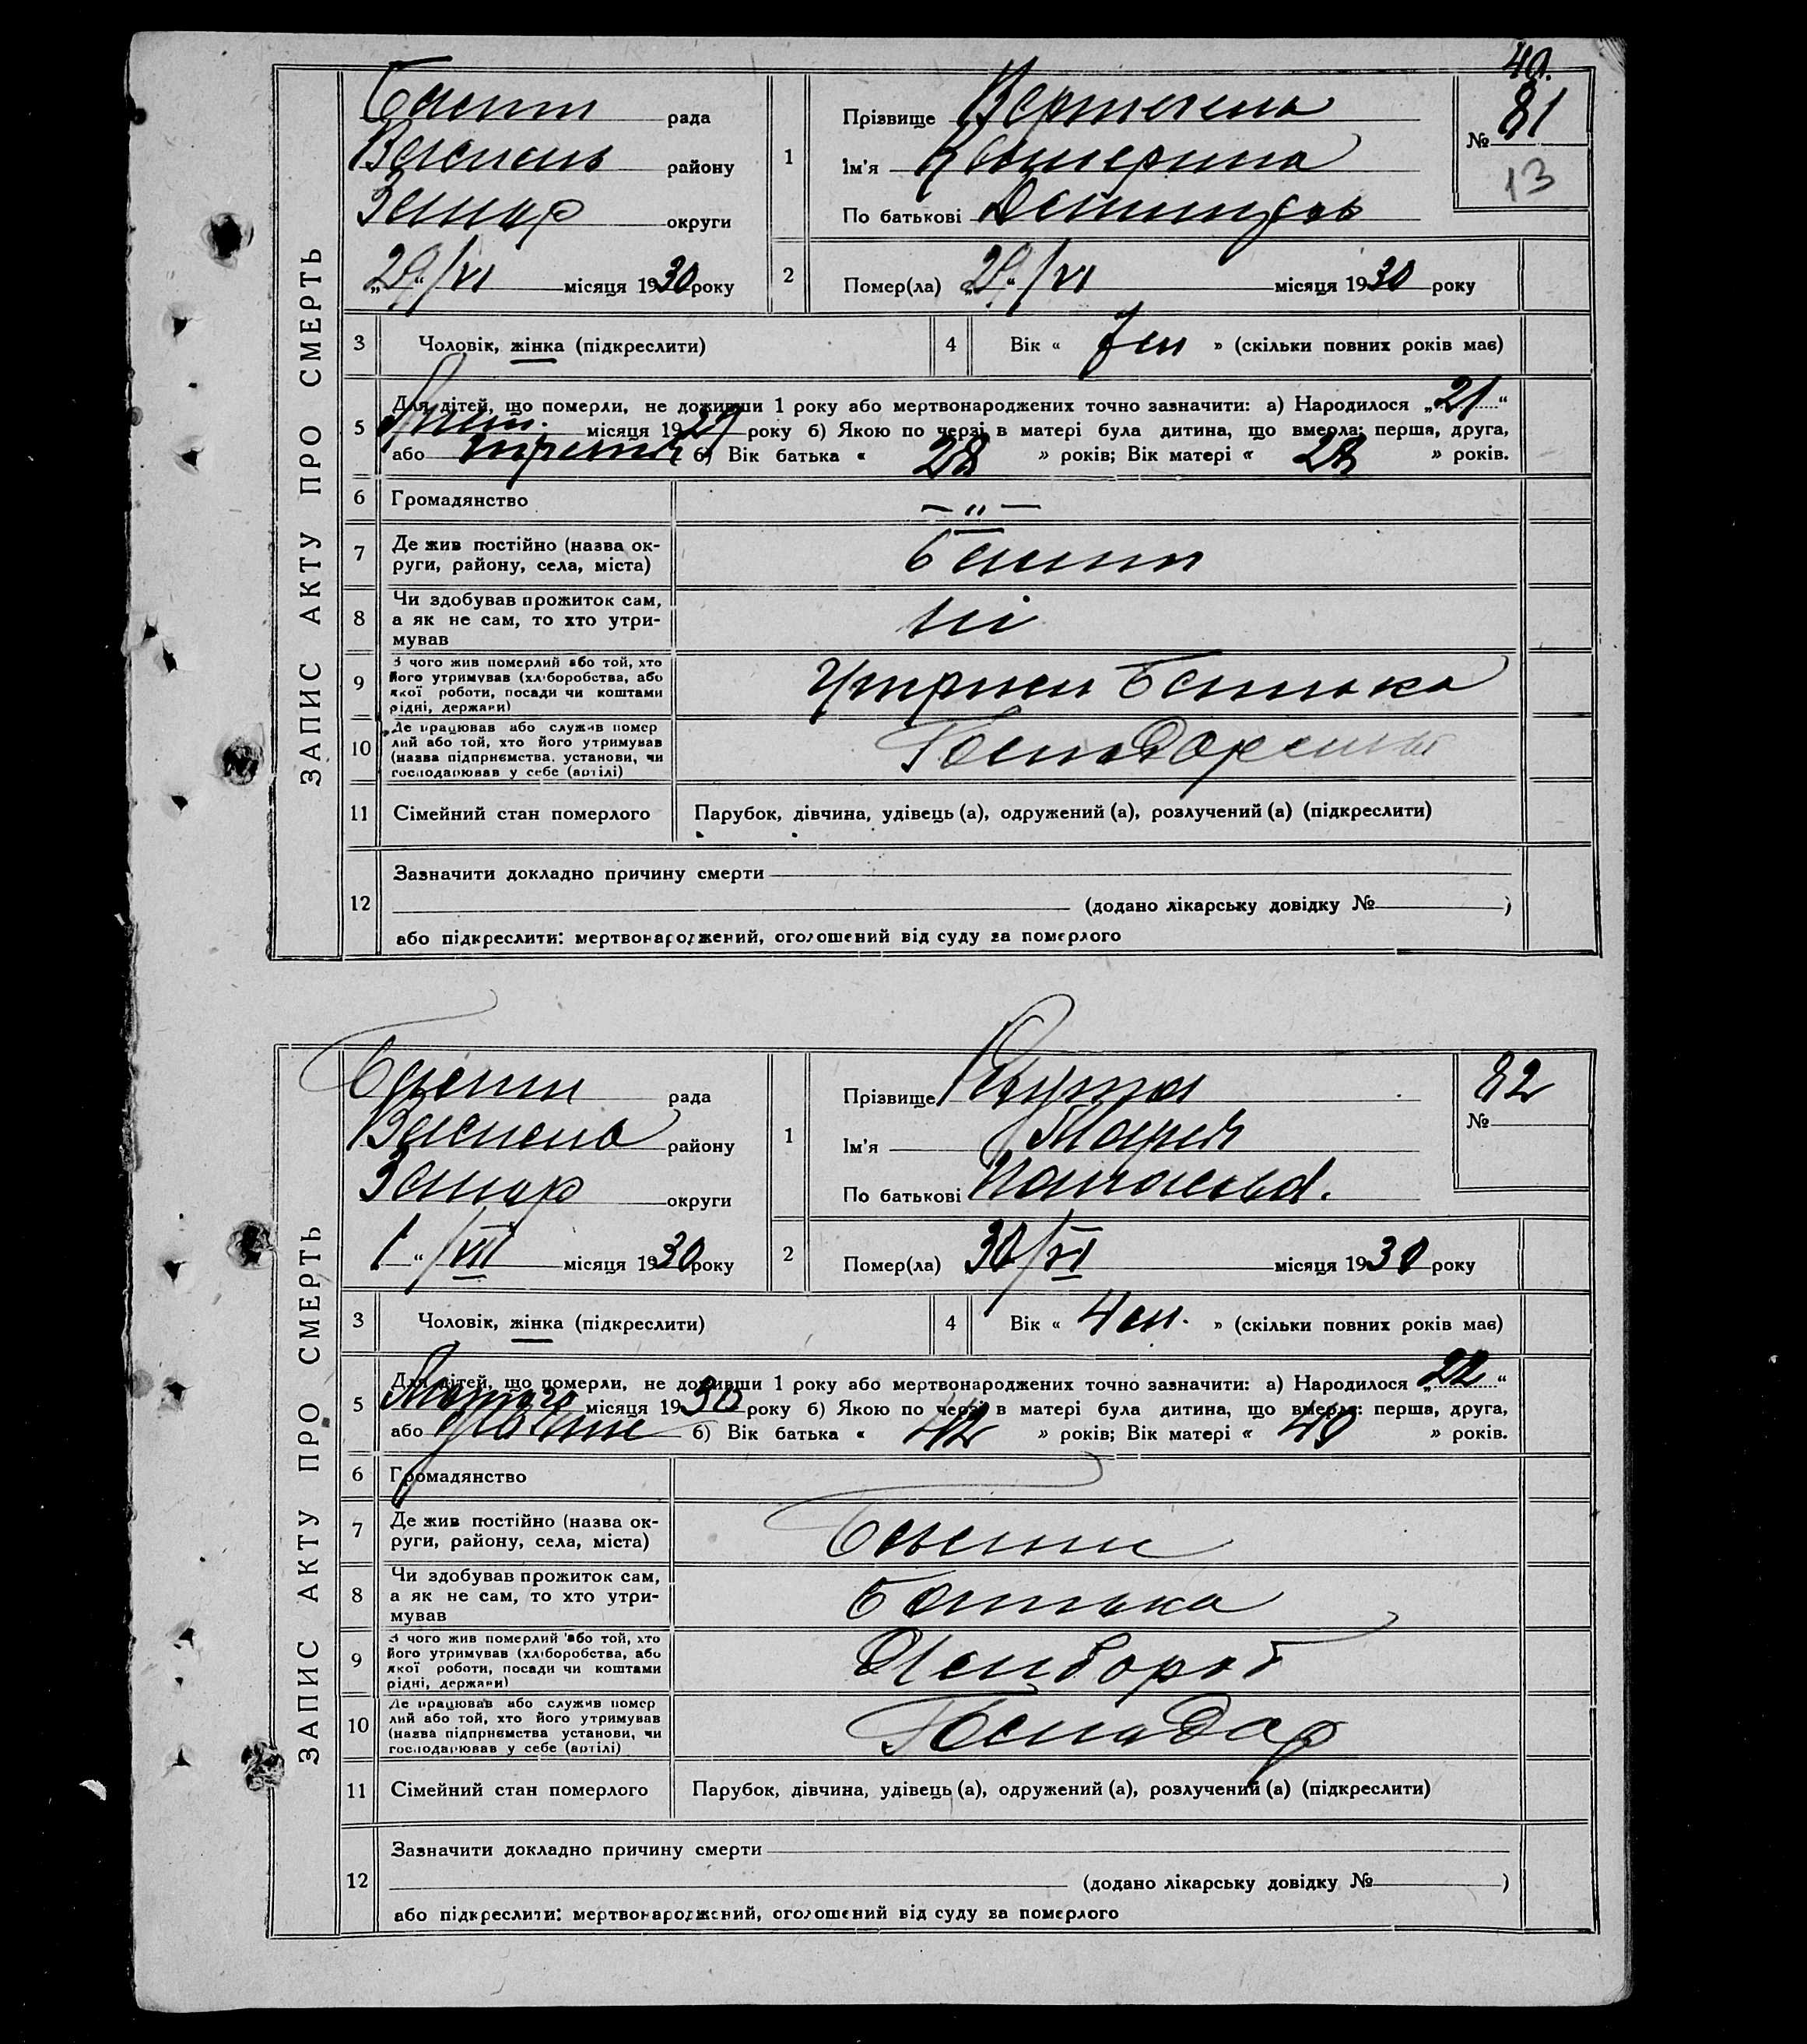 40.
ЗАПИС АКТУ ПРО СМЕРТЬ
рада
району
Запор округи
„29“/VI місяця 1930 року
1
Прізвище
Ім'я Катерина
По батькові
№ 81
13
2
Помер(ла) „29“/VI місяця 1930 року
3
Чоловік, жінка (підкреслити)
4
Вік « » (скільки повних років має)
5
Для дітей, що померли, не доживши 1 року або мертвонароджених точно зазначити: а) Народилося „21“
місяця 1929 року б) Якою по черзі в матері була дитина, що вмерла: перша, друга,
або третя б) Вік батька « 28 » років; Вік матері « 28 » років.
6
Громадянство
— „ —
7
Де жив постійно (назва ок-
руги, району, села, міста)
8
Чи здобував прожиток сам,
а як не сам, то хто утри-
мував
Ні
9
З чого жив померлий або той, хто
його утримував (хліборобства, або
якої роботи, посади чи коштами
рідні, держави)
Утриман Батька
10
Де працював або служив помер
лий або той, хто його утримував
(назва підприємства, установи, чи
господарював у себе (артілі)
11
Сімейний стан померлого
Парубок, дівчина, удівець (а), одружений (а), розлучений (а) (підкреслити)
12
Зазначити докладно причину смерти
(додано лікарську довідку № )
або підкреслити: мертвонароджений, оголошений від суду за померлого
ЗАПИС АКТУ ПРО СМЕРТЬ
рада
району
Запор округи
1 “/VII місяця 1930 року
1
Прізвище
Ім'я Мария
По батькові Панасова.
82
№
2
Помер(ла) 30/VI місяця 1930 року
3
Чоловік, жінка (підкреслити)
4
Вік « 4 м. » (скільки повних років має)
5
Для дітей, що померли, не доживши 1 року або мертвонароджених точно зазначити: а) Народилося „22“
Лютого місяця 1930 року б) Якою по черзі в матері була дитина, що вмерла: перша, друга,
або б) Вік батька « 42 » років; Вік матері « 40 » років.
6
Громадянство
7
Де жив постійно (назва ок-
руги, району, села, міста)
8
Чи здобував прожиток сам,
а як не сам, то хто утри-
мував
Батька
9
З чого жив померлий або той, хто
його утримував (хліборобства, або
якої роботи, посади чи коштами
рідні, держави)
10
Де працював або служив помер
лий або той, хто його утримував
(назва підприємства установи, чи
господарював у себе (артілі)
Господар
11
Сімейний стан померлого
Парубок, дівчина, удівець (а), одружений (а), розлучений (а) (підкреслити)
12
Зазначити докладно причину смерти
(додано лікарську довідку № )
або підкреслити: мертвонароджений, оголошений від суду за померлого